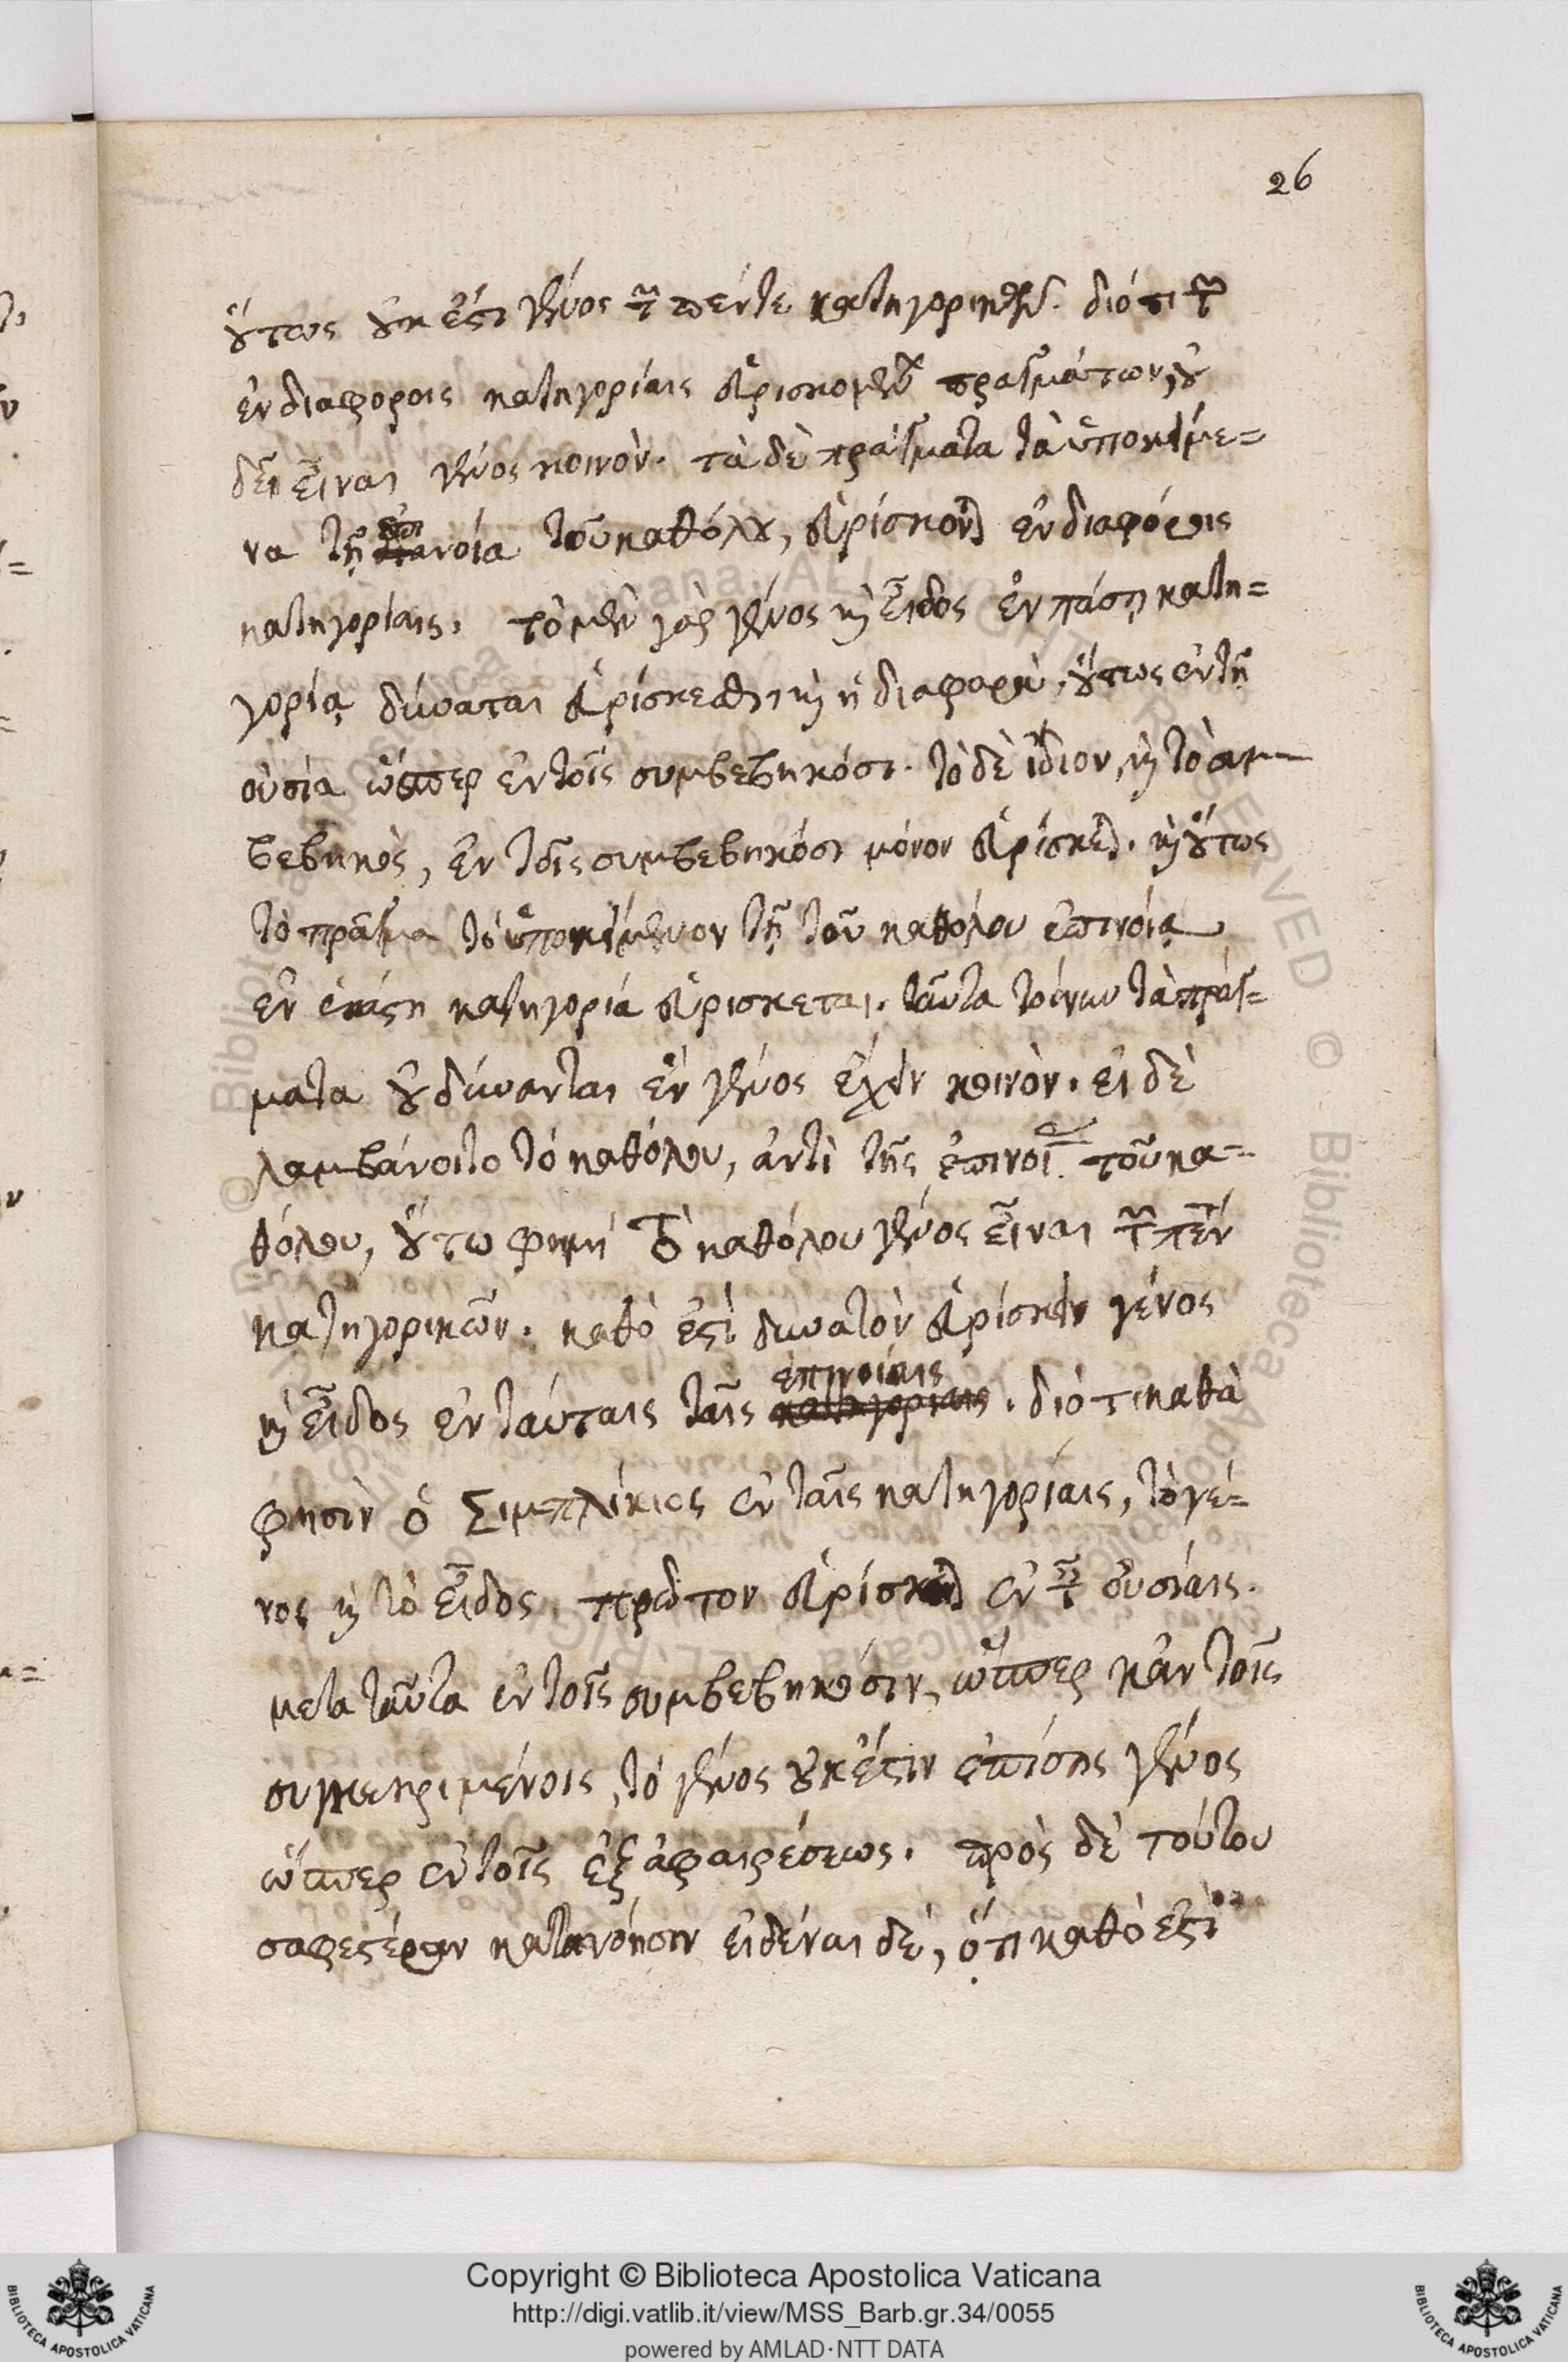 26
οὕτως οὐκ ἐστι γένος τῶν πέντε κατηγορικῶν. διότι τῶν
ἐν διαφοροις κατηγορίαις εὑρισκομένων πραγμάτων, οὐ
δεῖ εἶναι γένος κοινὸν. τὰ δὲ πράγματα τὰ ὑποκείμε=
να τῇ ἐπινοία τοῦ καθόλου, εὑρίσκονται ἐν διαφόροις
κατηγορίαις. τὸ μὲν γὰρ γένος καὶ εἶδος ἐν πάσῃ κατη=
γορίᾳ δύναται εὑρίσκεσθαι καὶ ἡ διαφορὰ, οὕτως ἐν τῇ
οὐσία ὥσπερ ἐν τοῖς συμβεβηκόσι. τὸ δὲ ἴδιον, καὶ τὸ συμ
βεβηκὸς, ἐν τοῖς συμβεβηκόσι μόνον εὑρίσκεται. καὶ οὕτως
τὸ πρᾶγμα τὸ ὑποκείμενον τῇ τοῦ καθόλου ἐπινοίᾳ
ἐν ἑκάστη κατηγορία εὑρισκεται. ταῦτα τοίνυν τὰ πράγ=
ματα οὐ δύνανται ἓν γένος ἔχειν κοινὸν. εἰ δὲ
λαμβάνοιτο τὸ καθόλου, ἀντὶ τῆς ἐπινοίας τοῦ κα=
θόλου, οὕτω φημὶ τὸ καθόλου γένος εἶναι τῶν πέντε
κατηγορικῶν. καθὸ ἐστὶ δυνατὸν εὑρίσκειν γένος
καὶ εἶδος ἐν ταύταις ταῖς ἐπινοίαις. διότι καθὰ
φησὶν ὁ Σιμπλίκιος ἐν ταῖς κατηγορίαις, τὸ γέ=
νος καὶ τὸ εἶδος πρῶτον εὑρίσκεται ἐν ταῖς οὐσίαις.
μετα ταῦτα ἐν τοῖς συμβεβηκόσιν, ὥσπερ κἀν τοῖς
συγκεκριμένοις, τὸ γένος οὐκ ἐστιν ἐπίσης γένος
ὥσπερ ἐν τοῖς ἐξ ἀφαιρέσεως. πρὸς δὲ τούτου
σαφεστέραν κατανόησιν εἰδέναι δεῖ, ὅτι καθὸ ἐστὶ
Copyright © Biblioteca Apostolica Vaticana
http://digi.vatlib.it/view/MSS_Barb.gr.34/0055
powered by AMLAD·NTT DATA